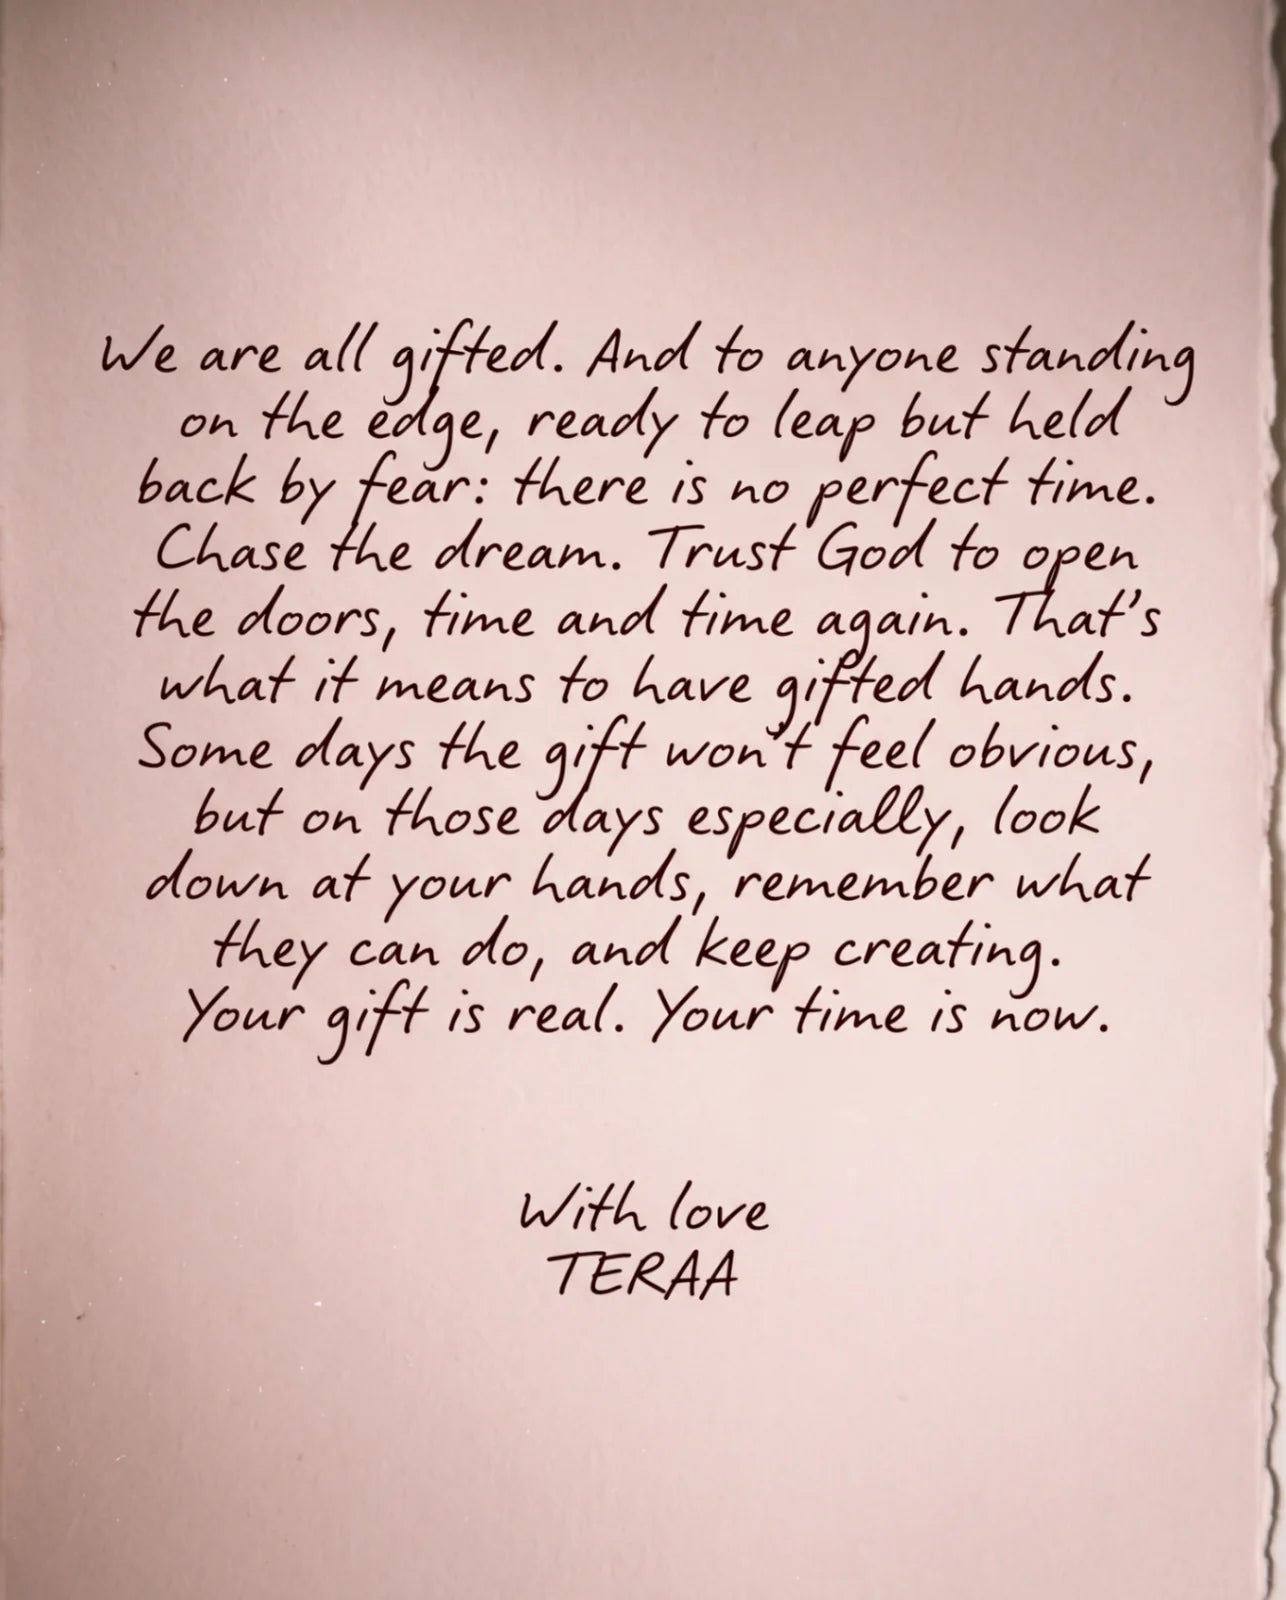 We are all gifted. And to anyone standing
on the edge, ready to leap but held
back by fear: there is no perfect time.
Chase the dream. Trust God to open
the doors, time and time again. That's
what it means to have gifted hands.
Some days the gift won't feel obvious,
but on those days especially, look
down at your hands, remember what
they can do, and keep creating.
Your gift is real. Your time is now.
With love
TERAA